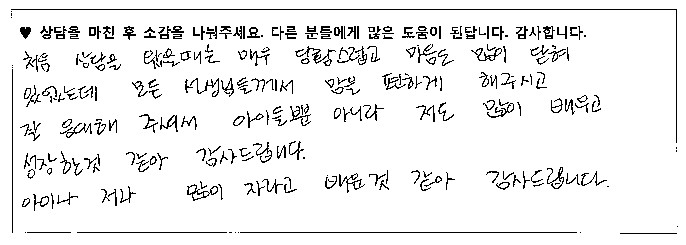 ♥ 상담을 마친 후 소감을 나눠주세요. 다른 분들에게 많은 도움이 된답니다. 감사합니다.
처음 상담을 왔을때는 매우 당황스럽고 마음도 많이 닫혀
있었는데 모든 선생님들께서 맘을 편하게 해주시고
잘 응대해 주셔서 아이들뿐 아니라 저도 많이 배우고
성장한것 같아 감사드립니다.
아이나 저나 많이 자라고 배운것 같아 감사드립니다.